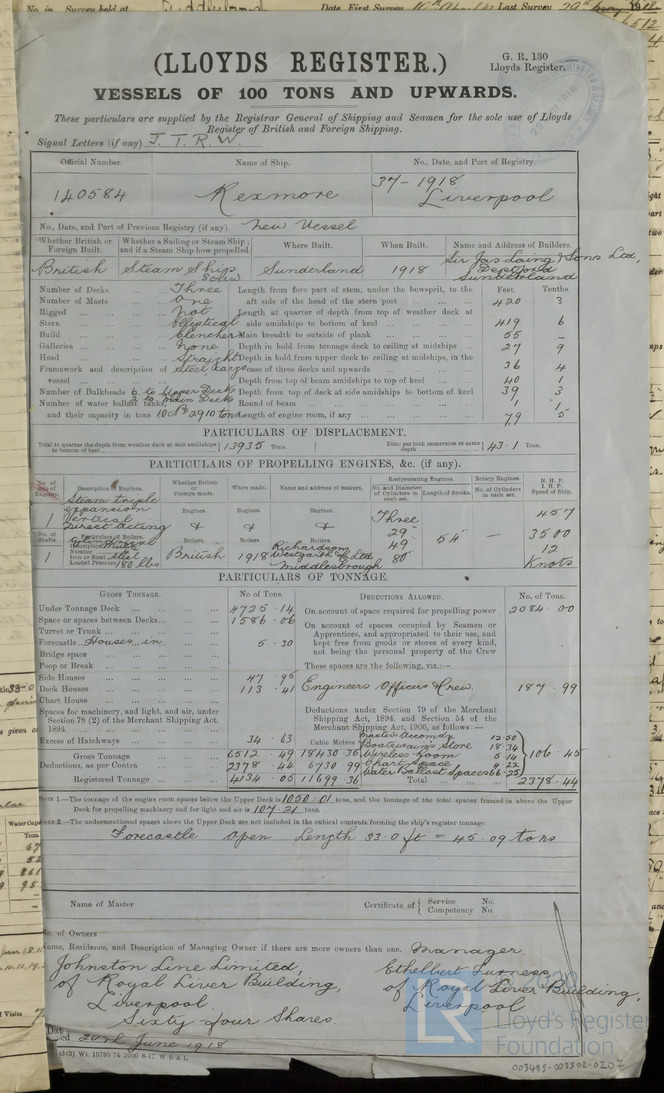 No. in Survey held at Middlesbro Date, First Survey Last Survey 1918
(LLOYDS REGISTER.)
G. R. 130
Lloyds Register.
VESSELS OF 100 TONS AND UPWARDS.
These particulars are supplied by the Registrar General of Shipping and Seamen for the sole use of Lloyds
Register of British and Foreign Shipping.
Signal Letters (if any) J. T. R. W.
Official Number. Name of Ship. No., Date, and Port of Registry.
140584 Rexmore 37-1918 Liverpool
No., Date, and Port of Previous Registry (if any). New Vessel
Whether British or Foreign Built. Whether a Sailing or Steam Ship; and if a Steam Ship how propelled. Where Built. When Built. Name and Address of Builders.
British Steam Ship Screw Sunderland 1918 Sir Jas Laing & Sons Ltd, Deptford Sunderland
Feet. Tenths.
Number of Decks Three Length from fore part of stem, under the bowsprit, to the
Number of Masts One aft side of the head of the stern post 420 3
Rigged Not Length at quarter of depth from top of weather deck at
Stern Elliptical side amidships to bottom of keel 419 6
Build Clencher Main breadth to outside of plank 55 –
Galleries None Depth in hold from tonnage deck to ceiling at midships 27 9
Head Straight Depth in hold from upper deck to ceiling at midships, in the
Framework and description of vessel Steel Cargo case of three decks and upwards 36 4
Depth from top of beam amidships to top of keel 40 1
Number of Bulkheads 6 to Upper Deck 2 to Main Deck Depth from top of deck at side amidships to bottom of keel 39 3
Number of water ballast tanks, Round of beam 1 1
and their capacity in tons 10 No 2910 tons Length of engine room, if any 79 5
PARTICULARS OF DISPLACEMENT.
Total to quarter the depth from weather deck at side amidships to bottom of keel 13935 Tons. Ditto per inch immersion at same depth 43.1 Tons.
PARTICULARS OF PROPELLING ENGINES, &c. (if any).
No. of sets of Engines. Description of Engines. Whether British or Foreign made. When made. Name and address of makers. Reciprocating Engines. No. and Diameter of Cylinders in each set. Length of Stroke. Rotary Engines. No. of Cylinders in each set. N.H.P. I.H.P. Speed of Ship.
1 Steam triple expansion Vertical Direct acting Engines. & Engines. & Three 29" 49" 80" 54" – 457 3500 12 Knots
No. of Shafts. Particulars of Boilers. Boilers. Boilers. Boilers.
Description Cylindrical Multi
Number
Iron or Steel Steel
Loaded Pressure 180 lbs
1 British 1918 Richardsons Westgarth & Co Ltd Middlesbrough
PARTICULARS OF TONNAGE.
GROSS TONNAGE. No of Tons. DEDUCTIONS ALLOWED. No. of Tons.
Under Tonnage Deck 4725.14 On account of space required for propelling power 2084.00
Space or spaces between Decks 1586.06 On account of spaces occupied by Seamen or
Turret or Trunk Apprentices, and appropriated to their use, and
Forecastle Houses in 5.30 kept free from goods or stores of every kind,
Bridge space not being the personal property of the Crew
Poop or Break These spaces are the following, viz.:—
Side Houses 47.95
Deck Houses 113.41 Engineers Officers & Crew. 187.99
Chart House
Spaces for machinery, and light, and air, under Deductions under Section 79 of the Merchant
Section 78 (2) of the Merchant Shipping Act, Shipping Act, 1894, and Section 54 of the
1894 Merchant Shipping Act, 1906, as follows:—
Excess of Hatchways 34.63 Cubic Metres
Gross Tonnage 6512.49 18430.36
Deductions, as per Contra 2378.44 6730.99
Registered Tonnage 4134.05 11699.36
Master's Accomdn 12.50
Boatswain's Store 18.34
Wireless Room 5.14
Chart Space 4.22
Water Ballast Spaces 66.25
106.45
Total 2378.44
NOTE 1.—The tonnage of the engine room spaces below the Upper Deck is 1050.01 tons, and the tonnage of the total spaces framed in above the Upper
Deck for propelling machinery and for light and air is 107.21 tons.
NOTE 2.—The undermentioned spaces above the Upper Deck are not included in the cubical contents forming the ship's register tonnage.
Forecastle Open Length 33.0 ft = 45.09 tons
Name of Master Certificate of { Service No. Competency No.
No. of Owners
Name, Residence, and Description of Managing Owner if there are more owners than one. Manager
Johnston Line Limited, Ethelbert Furness,
of Royal Liver Building, of Royal Liver Building,
Liverpool Liverpool
Sixty four Shares.
Dated 20th June 1918
(313) Wt. 19793/74 2000 8-17 W B & L
LR
Lloyd's Register
Foundation
003495-003502-0207